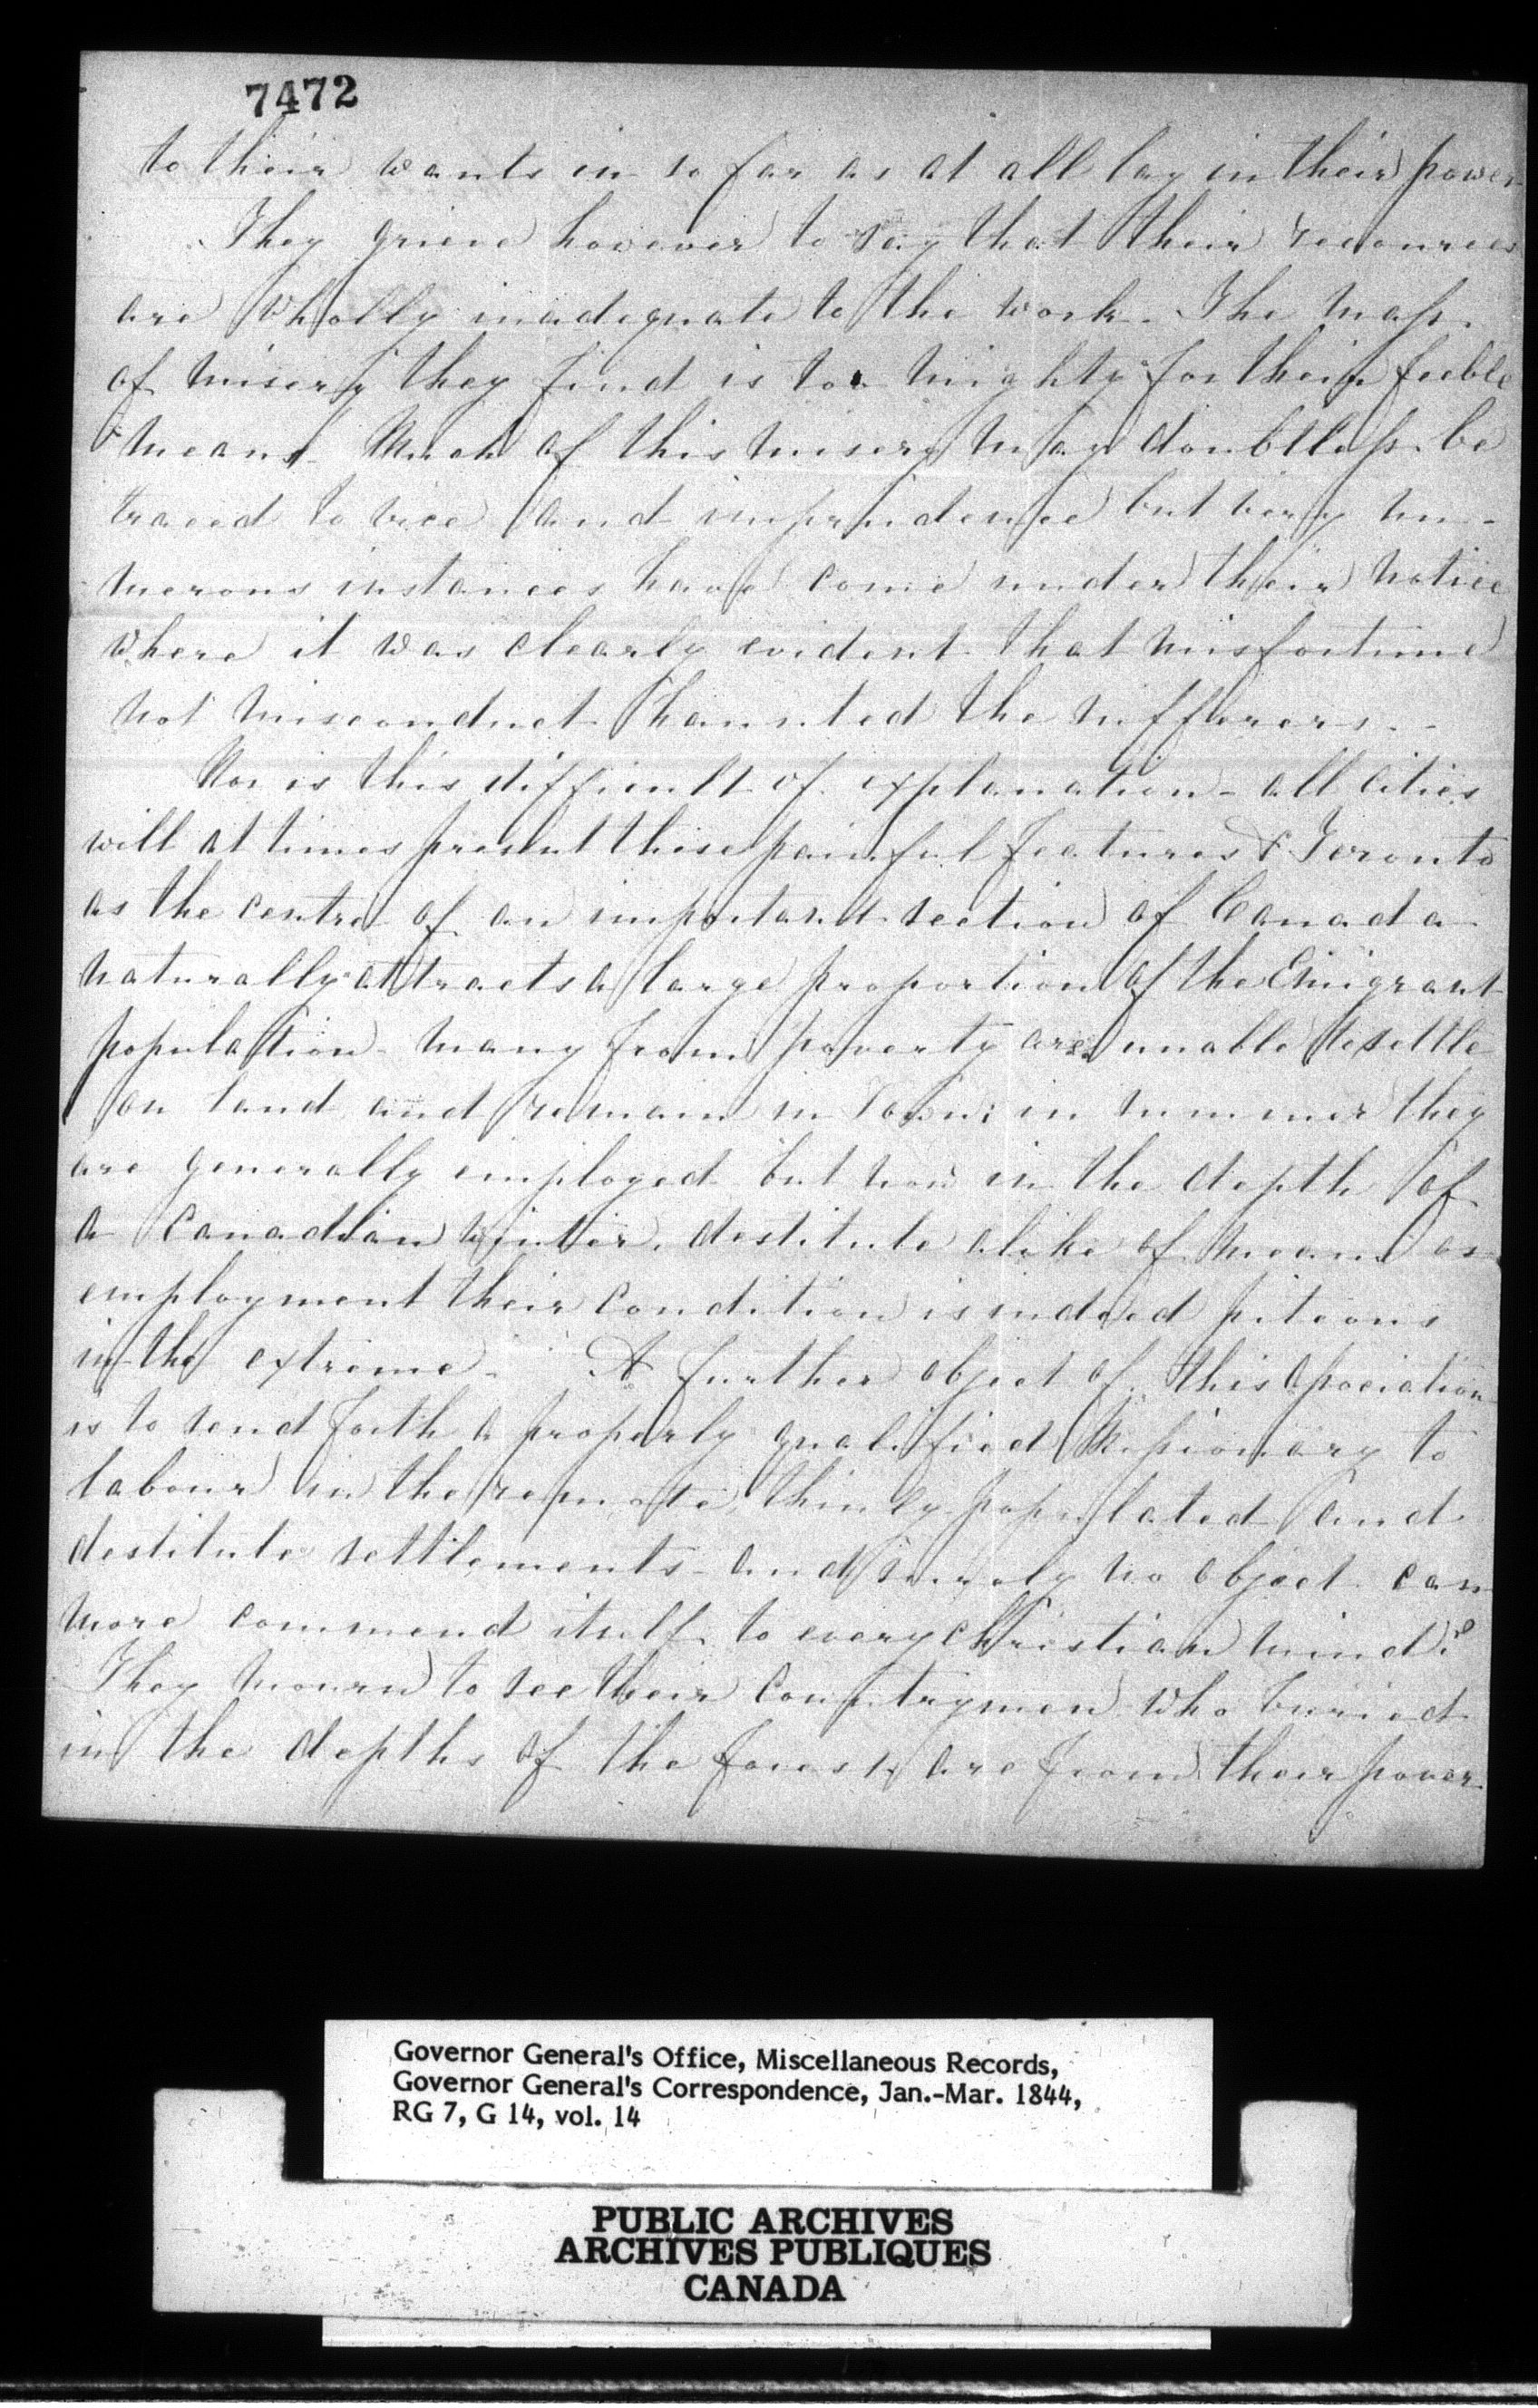 7472
to their wants in so far as at all lay in their power
They grieve however to say that their resources
are wholly inadequate to the work. The mass
of misery they find is too mighty for their feeble
means. Much of this misery may doubtless be
traced to vice and imprudence but very nu-
merous instances have come under their notice
where it was clearly evident that misfortune
not misconduct haunted the sufferers. -
Nor is this difficult of explanation - all cities
will at times present these painful features & Toronto
as the centre of an important section of Canada
naturally attracts a large proportion of the Emigrant
population - many from poverty are unable to settle
on land and remain in Town; in summer they
are generally employed but now in the depth of
a Canadian winter, destitute alike of means or
employment their condition is indeed piteous
in the extreme - A further object of this Association
is to send forth a properly qualified Missionary to
labour in the remote thinly populated and
destitute settlements - and surely no object can
more commend itself to every Christian mind?
They mourn to see their Countrymen who buried
in the depths of the forest, are from their power
Governor General's Office, Miscellaneous Records,
Governor General's Correspondence, Jan.-Mar. 1844,
RG 7, G 14, vol. 14
PUBLIC ARCHIVES
ARCHIVES PUBLIQUES
CANADA